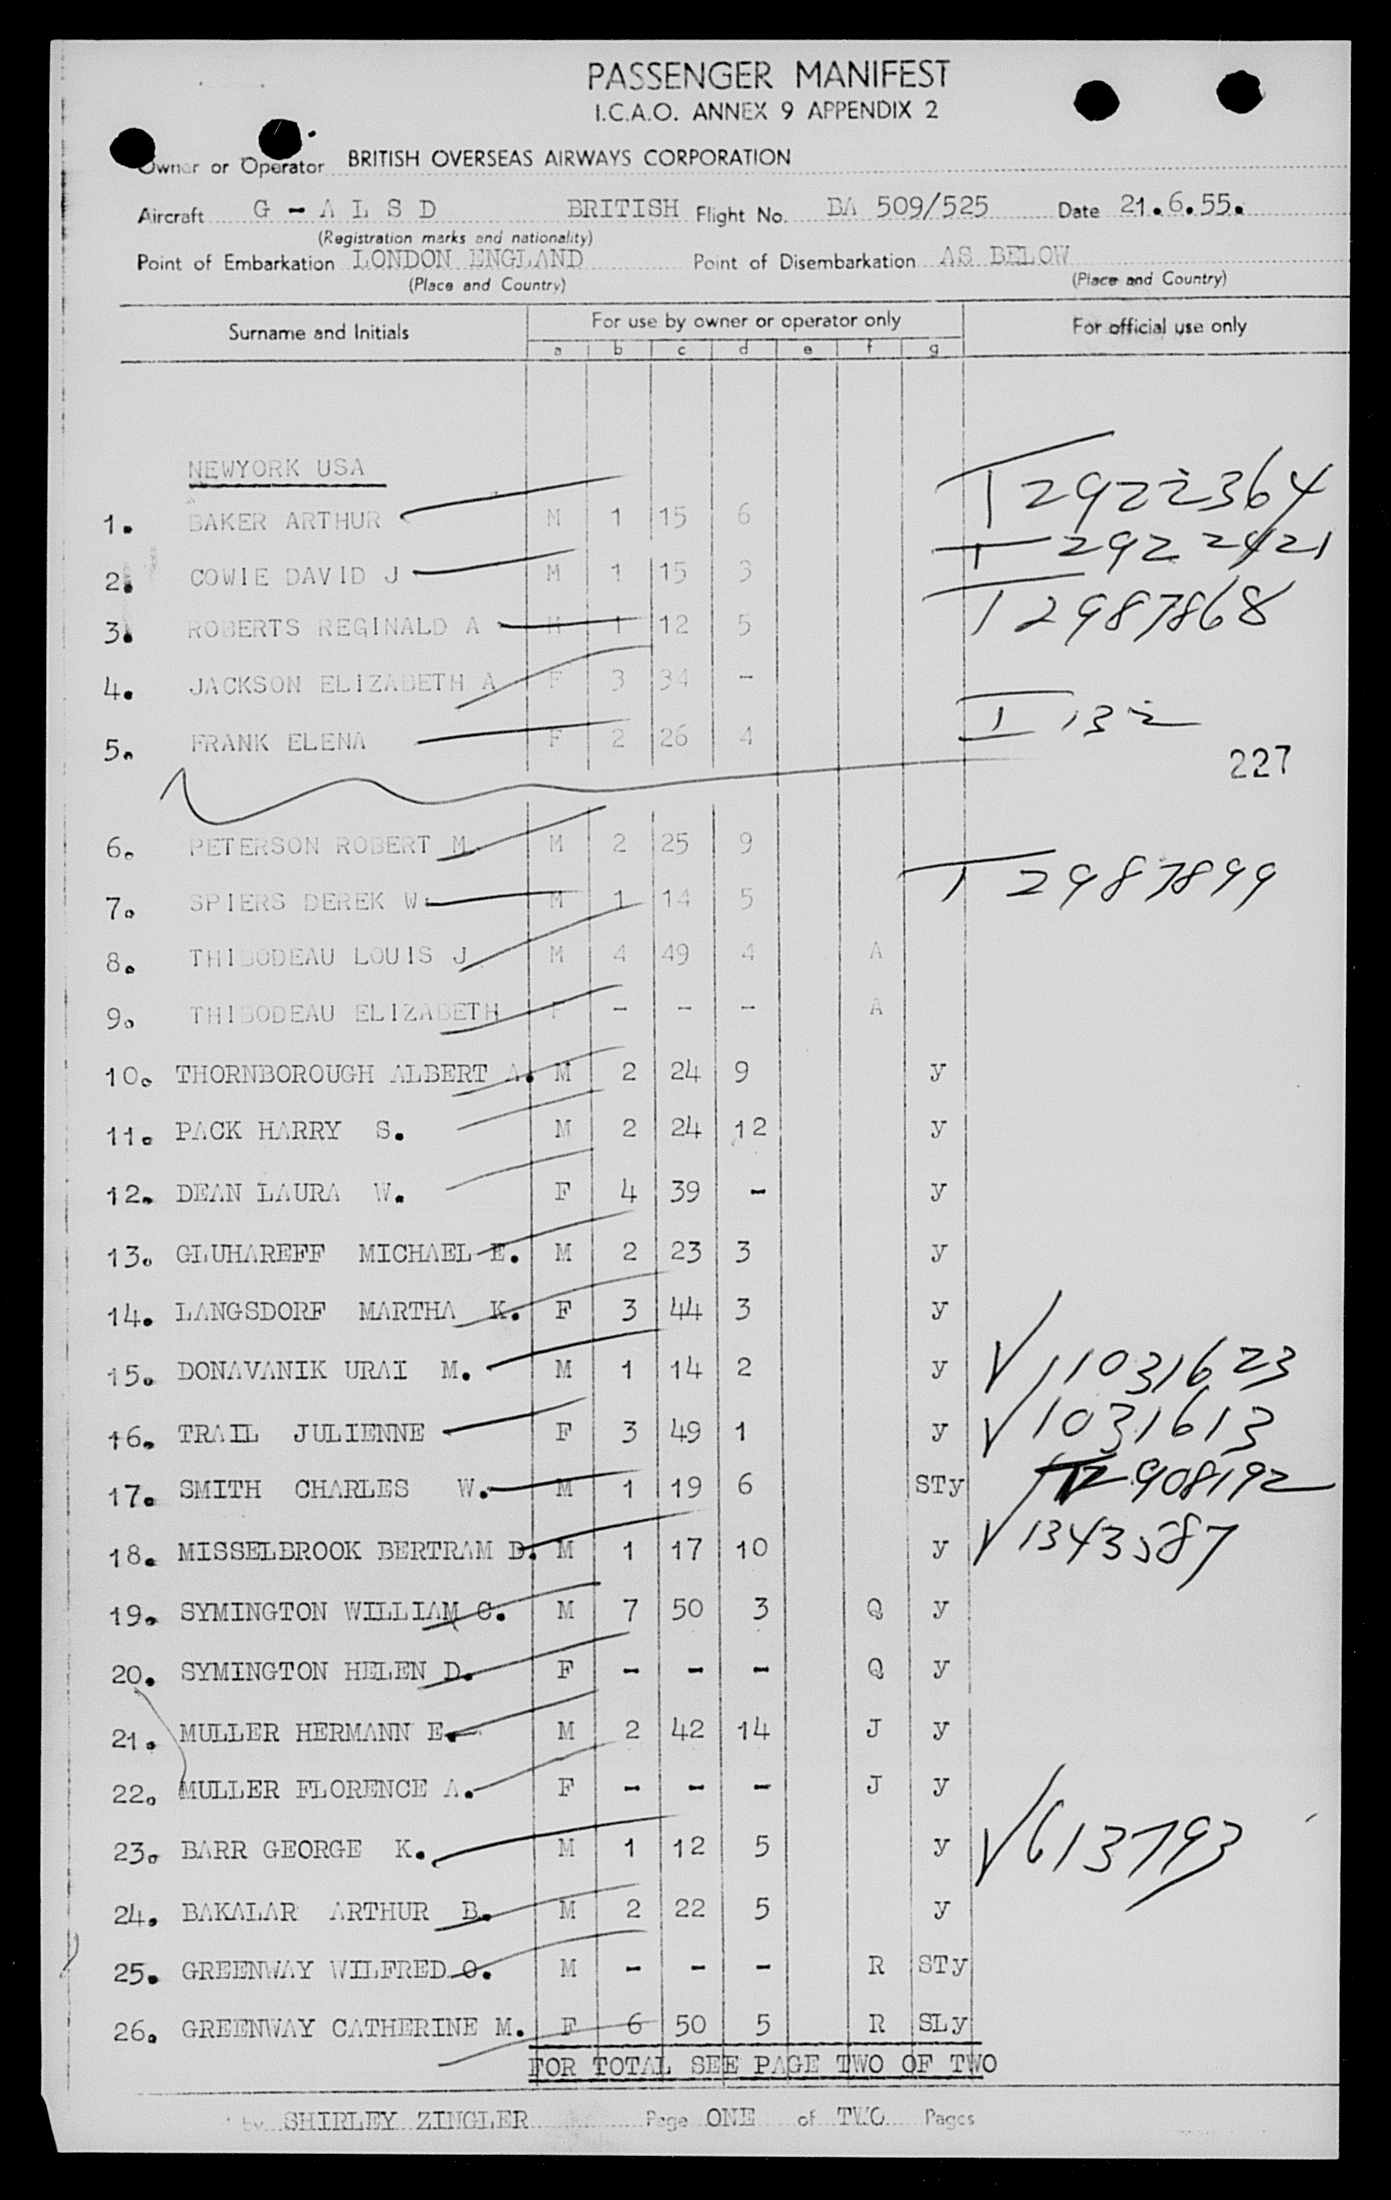 PASSENGER MANIFEST
I.C.A.O. ANNEX 9 APPENDIX 2
Owner or Operator BRITISH OVERSEAS AIRWAYS CORPORATION
Aircraft G - A L S D BRITISH Flight No. BA 509/525 Date 21.6.55.
(Registration marks and nationality)
Point of Embarkation LONDON ENGLAND Point of Disembarkation AS BELOW
(Place and Country) (Place and Country)
Surname and Initials For use by owner or operator only For official use only
a b c d e f g
NEWYORK USA
1. BAKER ARTHUR M 1 15 6 T 2922364
2. COWIE DAVID J M 1 15 3 T 2922421
3. ROBERTS REGINALD A M 1 12 5 T 2987868
4. JACKSON ELIZABETH A F 3 34 -
5. FRANK ELENA F 2 26 4 I 132
227
6. PETERSON ROBERT M. M 2 25 9
7. SPIERS DEREK W. M 1 14 5 T 2987899
8. THIBODEAU LOUIS J M 4 49 4 A
9. THIBODEAU ELIZABETH F - - - A
10. THORNBOROUGH ALBERT A. M 2 24 9 y
11. PACK HARRY S. M 2 24 12 y
12. DEAN LAURA W. F 4 39 - y
13. GLUHAREFF MICHAEL E. M 2 23 3 y
14. LANGSDORF MARTHA K. F 3 44 3 y
15. DONAVANIK URAI M. M 1 14 2 y V 11031623
16. TRAIL JULIENNE F 3 49 1 y V 1031613
17. SMITH CHARLES W. M 1 19 6 STy T2908192
18. MISSELBROOK BERTRAM D. M 1 17 10 y V 1343587
19. SYMINGTON WILLIAM C. M 7 50 3 Q y
20. SYMINGTON HELEN D. F - - - Q y
21. MULLER HERMANN E. M 2 42 14 J y
22. MULLER FLORENCE A. F - - - J y
23. BARR GEORGE K. M 1 12 5 y V 613793
24. BAKALAR ARTHUR B. M 2 22 5 y
25. GREENWAY WILFRED O. M - - - R STy
26. GREENWAY CATHERINE M. F 6 50 5 R SLy
FOR TOTAL SEE PAGE TWO OF TWO
by SHIRLEY ZINGLER Page ONE of TWO Pages